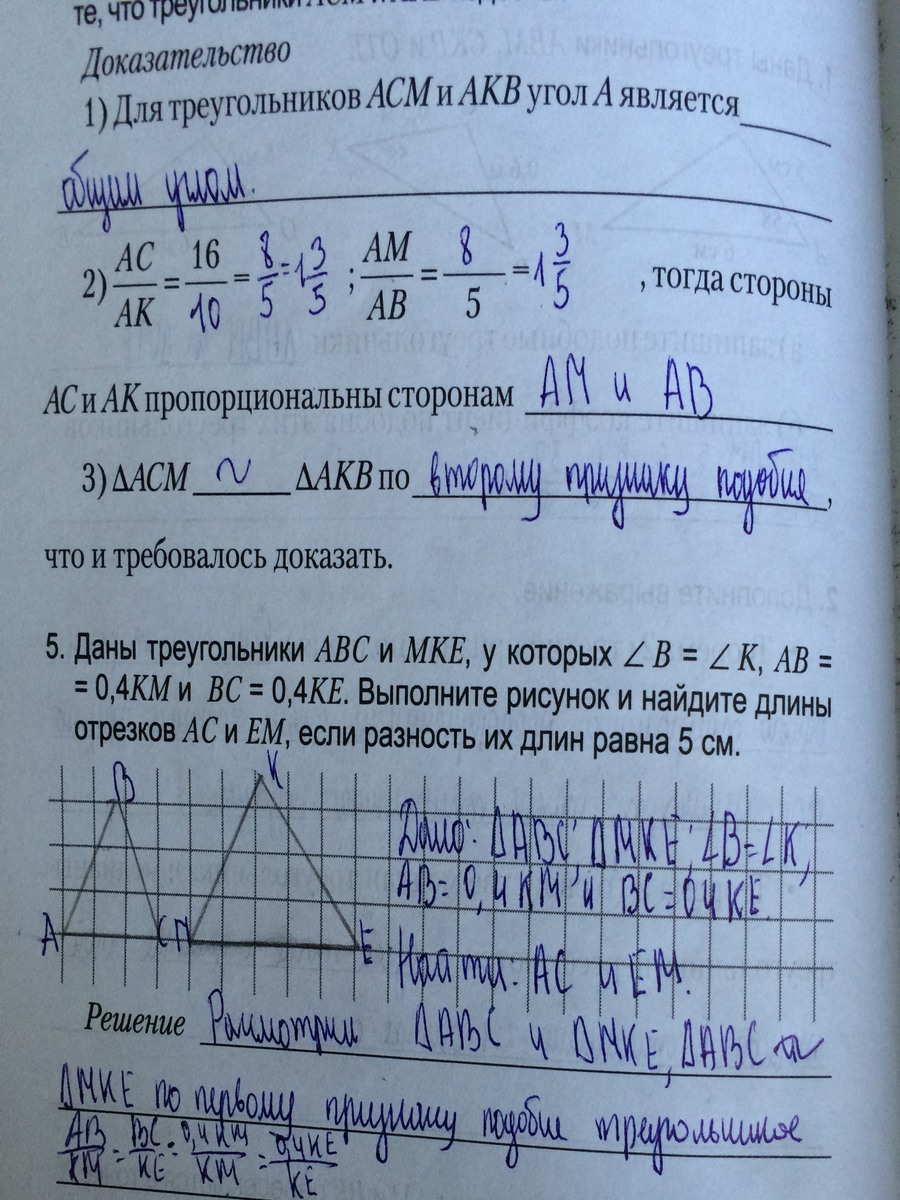 те, что треугольники ACM и
Доказательство
1) Для треугольников ACM и AKB угол A является
общим углом.
2) AC/AK = 16/10 = 8/5 = 1 3/5 ; AM/AB = 8/5 = 1 3/5 , тогда стороны
AC и AK пропорциональны сторонам AM и AB
3) ΔACM ~ ΔAKB по второму признаку подобия,
что и требовалось доказать.
5. Даны треугольники ABC и MKE, у которых ∠B = ∠K, AB =
= 0,4KM и BC = 0,4KE. Выполните рисунок и найдите длины
отрезков AC и EM, если разность их длин равна 5 см.
B K
A C M E
Дано: ΔABC; ΔMKE; ∠B=∠K;
AB=0,4KM и BC=04KE.
Найти: AC и EM.
Решение Рассмотрим ΔABC и ΔMKE, ΔABC ~
ΔMKE по первому признаку подобие треугольников
AB/KM = BC/KE = 0,4KM/KM = 04KE/KE